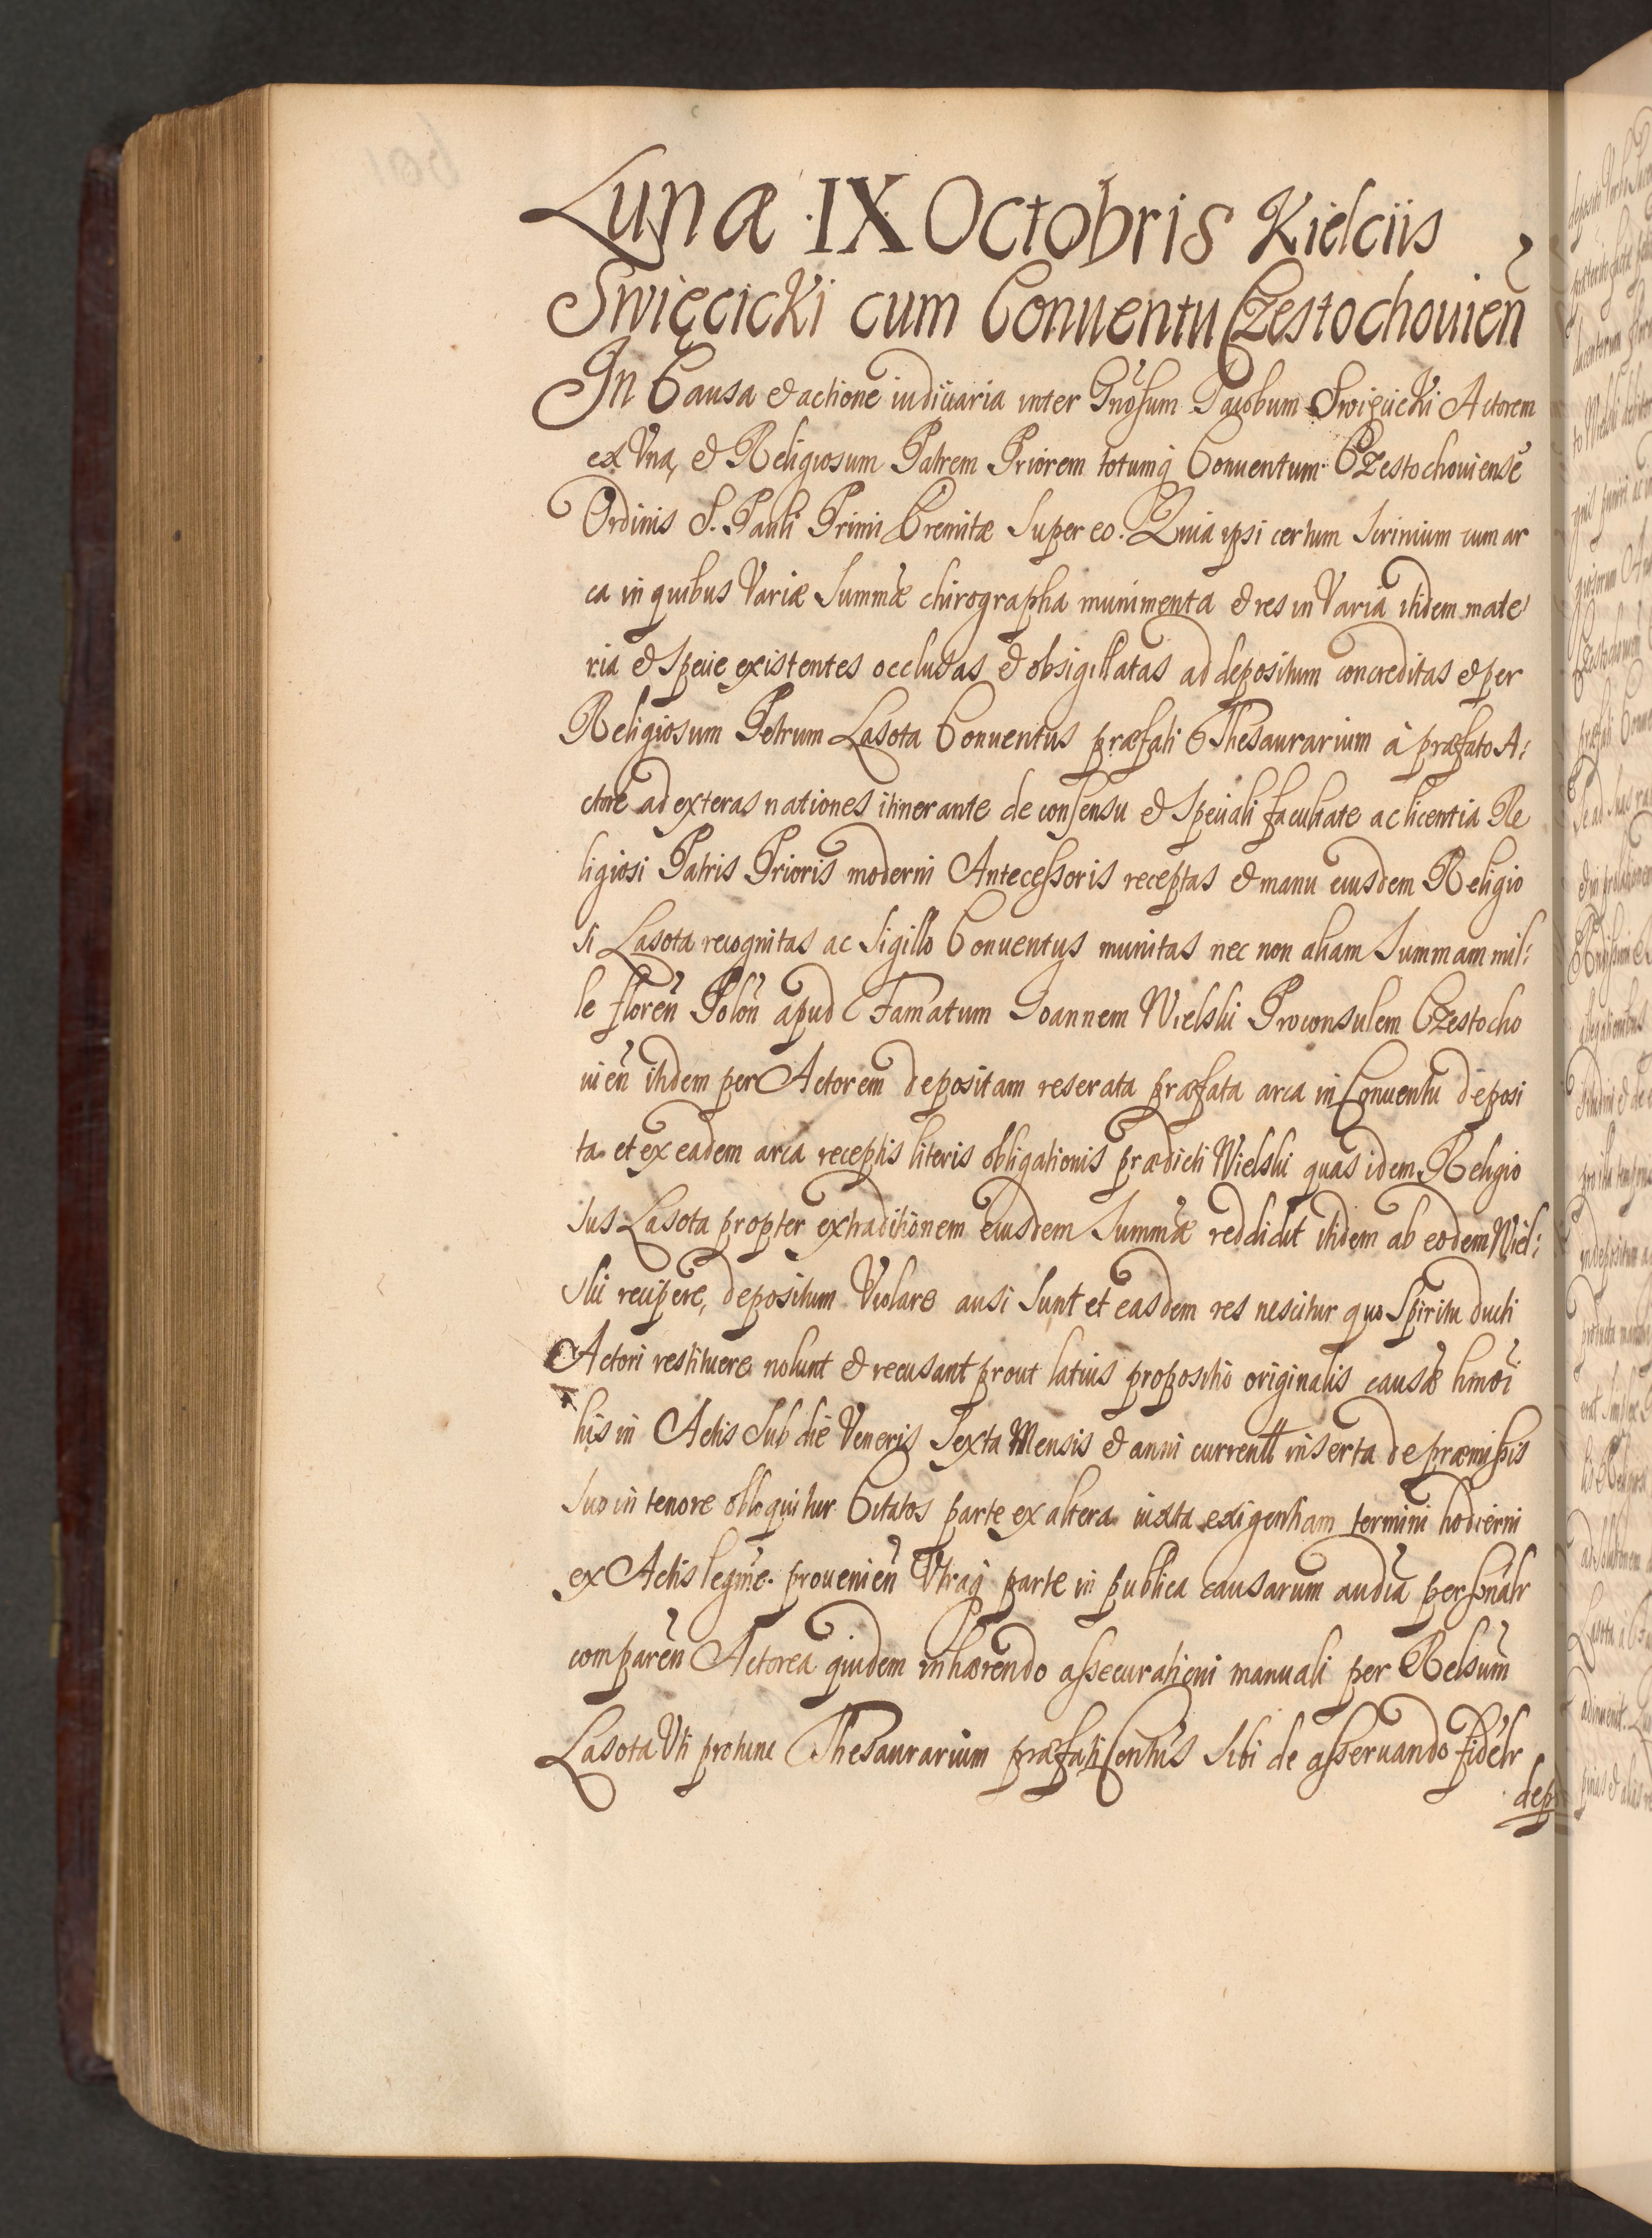 Lunæ IX Octobris Kielciis
Swięcicki cum Conuentu Czestochouień
In Causa et actione iudiciaria inter Gnosum Jacobum Swięcicki Actorem
ex Vna, et Religiosum Patrem Priorem totumq Conuentum Czestochouiense
Ordinis S. Pauli Primi Eremitæ Super eo. Quia ipsi certum Scrinium cum ar
ca in quibus Variæ Summæ chirographa munimenta et res in Varia itidem mate
ria et Specie existentes occlusas et obsigillatas ad depositum concreditas et per
Religiosum Petrum Lasota Conuentus præfati Thesaurarium à præfato A:
ctore ad exteras nationes itinerante de consensu et Speciali facultate ac licentia Re
ligiosi Patris Prioris moderni Antecessoris receptas et manu eiusdem Religio
si Lasota recognitas ac Sigillo Conuentus munitas nec non aliam Summam mil:
le floreñ Poloñ apud Famatum Joannem Nielski Proconsulem Czestocho
uień itidem per Actorem depositam reserata præfata arca in Conuentu deposi
ta et ex eadem arca receptis literis obligationis prædicti Nielski quas idem Religio
sus Lasota propter extraditionem eiusdem Summæ reddidit itidem ab eodem Niel:
ski recipere, depositum Violare ausi Sunt et easdem res nescitur quo Spiritu ducti
Actori restituere nolunt et recusant prout latius propositio originalis causæ hmoi
his in Actis Sub die Veneris Sexta Mensis et anni current inserta de præmissis
suo in tenore obloquitur Citatos parte ex altera iuxta exigentiam termini hodierni
ex Actis legme prouenień Vtraq parte in publica causarum audia personalr
compareñ Actorea quidem inhærendo assecurationi manuali per Relsum
Lasota Vti protunc Thesaurarium præfati Contus Sibi de asseruando fidelr